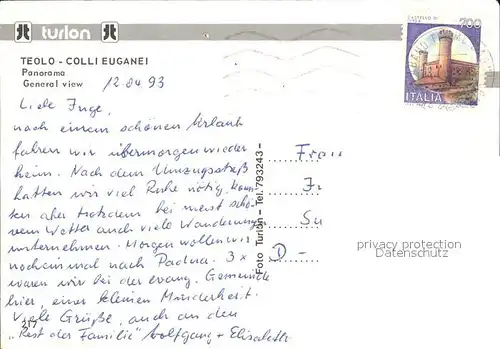 turlon
TEOLO - COLLI EUGANEI
Panorama
General view
12.04.93
CASTELLO DI
700
ITALIA
Liebe Inge,
nach einem schönen Urlaub
fahren wir übermorgen wieder
heim. Nach dem Umzugsstreß
hatten wir viel Ruhe nötig, konn-
ten aber trotzdem bei meist schö-
nem Wetter auch viele Wanderungen
unternehmen. Morgen wollen wir
nocheinmal nach Padua. 3 x
waren wir bei der evang. Gemeinde
hier, einer kleinen Minderheit.
Viele Grüße, auch an den
„Rest der Familie" Wolfgang + Elisabeth
217
Foto Turlon - Tel. 793243 -
Frau
D -
privacy protection
Datenschutz